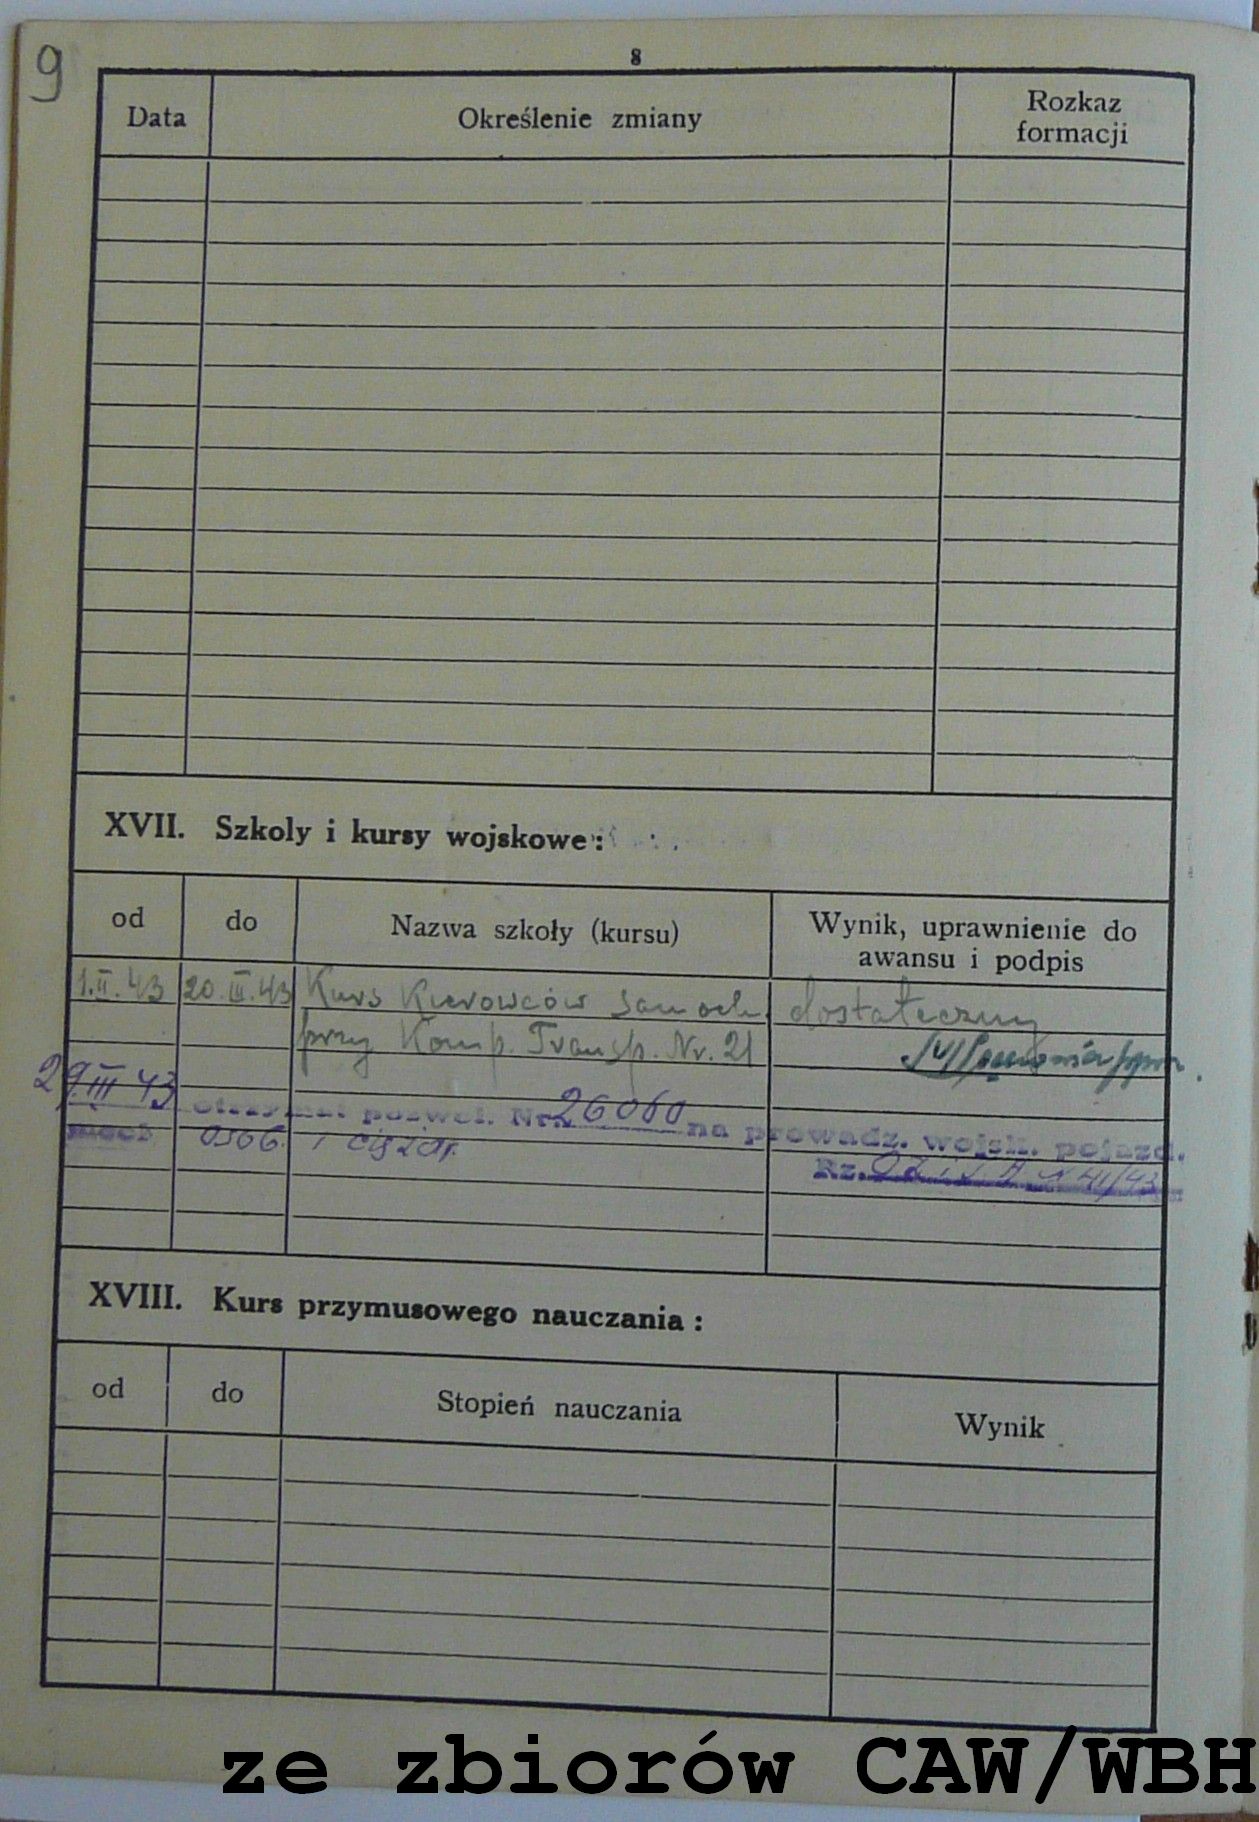 9
8
Data Określenie zmiany Rozkaz formacji
XVII. Szkoly i kursy wojskowe :
od do Nazwa szkoły (kursu) Wynik, uprawnienie do awansu i podpis
1.II.43 20.III.43 Kurs Kierowców Samoch. dostateczny
przy Komp. Transp. Nr. 21
29.III 43 otrzymał pozwol. Nr. 26060 na prowadz. wojsk. pojazd.
mech. osob. i ciężar.
Rz. 41/43
XVIII. Kurs przymusowego nauczania :
od do Stopień nauczania Wynik
ze zbiorów CAW/WBH